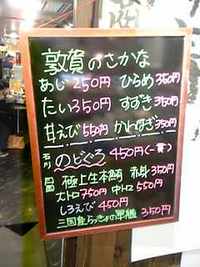 敦賀のさかな
あじ 250円 ひらめ 350円
たい 350円 すずき 350円
甘えび 550円 かわはぎ 350円
石川 のどぐろ 450円(一貫)
極上生本鮪 赤身 350円
大トロ 750円 中トロ 550円
しろえび 450円
三国産らっきょの軍艦 350円